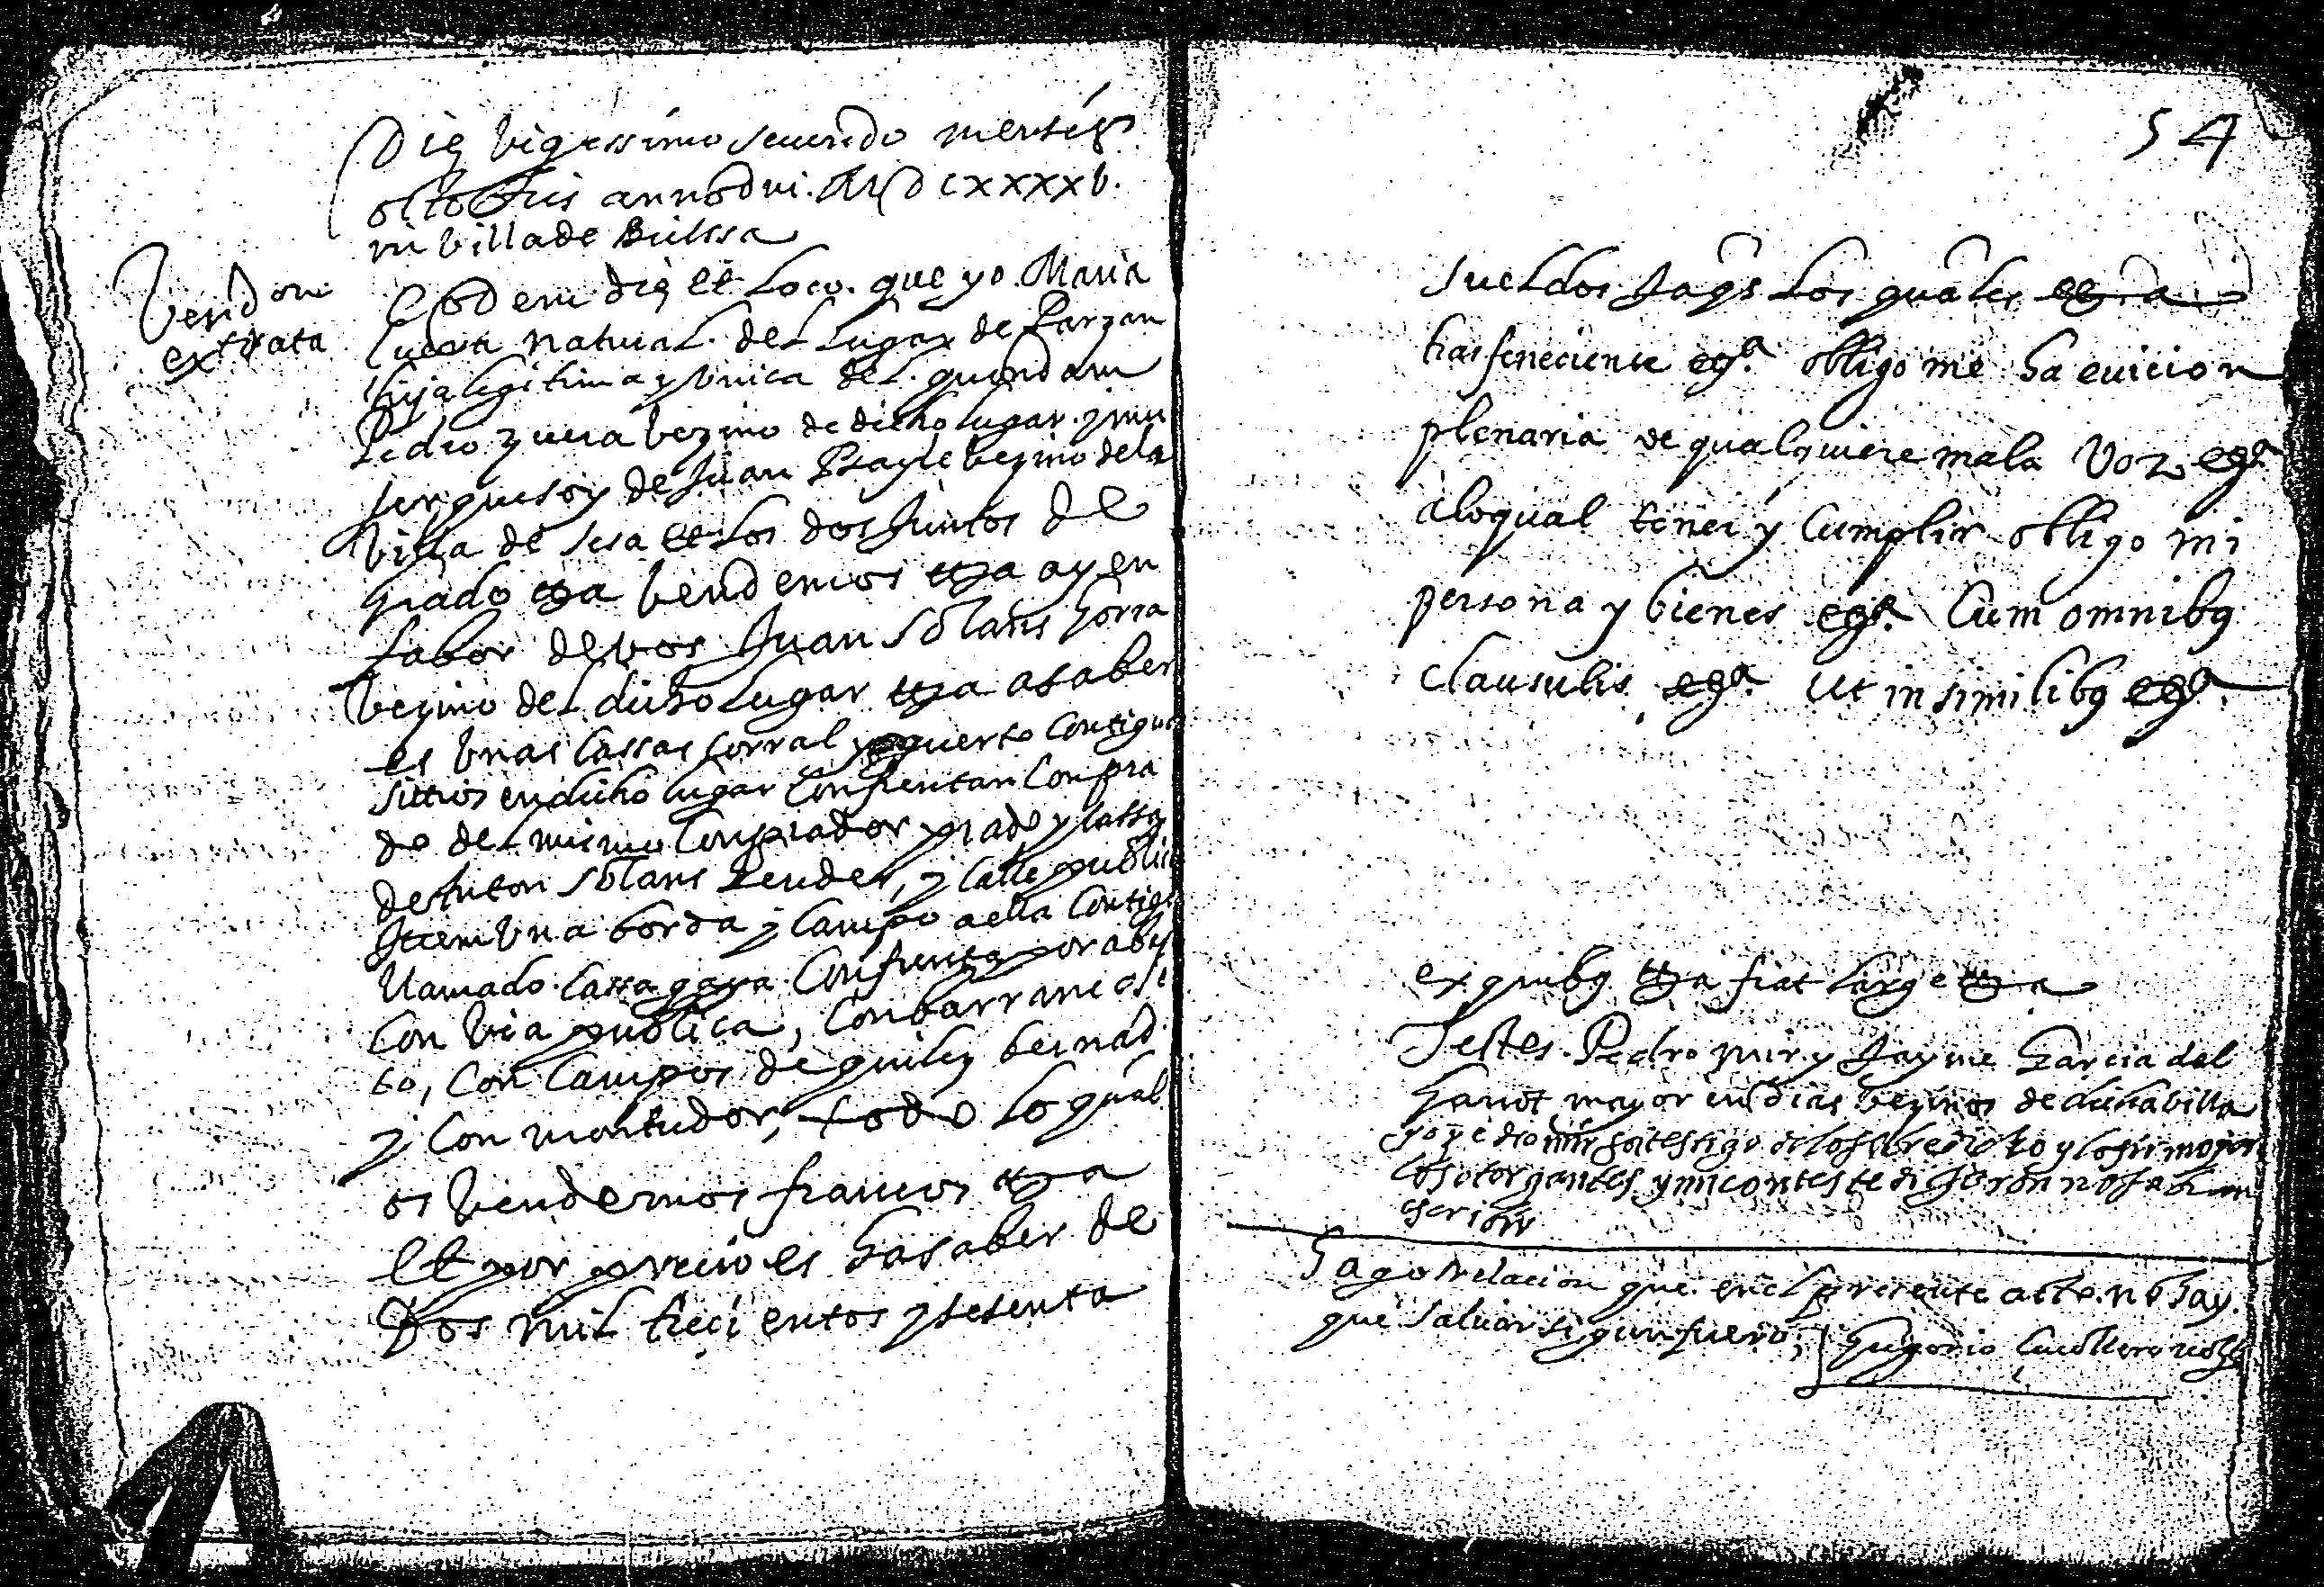 Die vigessimo secundo mensis
octobris anno dni. MDCXXXXV.
in villa de Bielssa
Vendon
extrata
Eodem die et Loco. que yo Maria
natural del lugar de Parzan
hija legitima y unica del quondam
Pedro zuera vezino de dicho lugar y mu
jer que soy de Juan vezino dela
villa de sesa et los dos Juntos de
grado etza vendemos etza a y en
fabor de vos Juan Solans
vezino del dicho lugar etza a saber
es unas cassas corral y guerto contiguos
sittios en dicho lugar confrentan con pra
do del mismo comprador prado y cassa
de Anton Solans y calle publica
Item una borda y campo a ella contigo
llamado cassa confrenta por
con via publica, con barranco
to, con campos de
y con todo lo qual
os vendemos francos etza
Et por precio es ha saber de
Dos mil trecientos y sesenta
54
sueldos Jaqs los quales
tras feneciense egª obligo me ha evicion
plenaria de qualquiere mala voz egª
a lo qual tener y cumplir obligo mi
persona y bienes egª. Cum omnibq
clausulis egª. ut in similibq egª.
ex quibq etza fiat large etza
Testes. Pedro mir y Jayme Garcia del
mayor en dias vezinos de dicha villa
yo pedro mir soi testigo de lo sobredicho y lo firmo por
los otorgantes y mi conteste dijeron no sabian
escrivir
Hago relacion que en el presente acto no hay
que salvar sigun fuero;